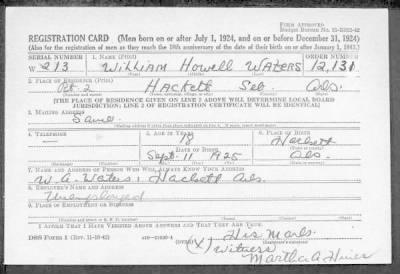 FORM APPROVED
REGISTRATION CARD (Men born on or after July 1, 1924, and on or before December 31, 1924)
(Also for the registration of men as they reach the 18th anniversary of the date of their birth on or after January 1, 1943.)
SERIAL NUMBER 1. NAME (Print) ORDER NUMBER
W 213 William Howell Waters 12,131
(First) (Middle) (Last)
2. PLACE OF RESIDENCE (Print)
Rt. 2 Hackett Seb. Ark.
[THE PLACE OF RESIDENCE GIVEN ON LINE 2 ABOVE WILL DETERMINE LOCAL BOARD
JURISDICTION; LINE 2 OF REGISTRATION CERTIFICATE WILL BE IDENTICAL]
3. MAILING ADDRESS
Same
4. TELEPHONE 5. AGE IN YEARS 6. PLACE OF BIRTH
18 Hackett
DATE OF BIRTH
Sept. 11 1925 Ark.
7. NAME AND ADDRESS OF PERSON WHO WILL ALWAYS KNOW YOUR ADDRESS
W. A. Waters, Hackett Ark.
8. EMPLOYER'S NAME AND ADDRESS
Unemployed
9. PLACE OF EMPLOYMENT OR BUSINESS
I AFFIRM THAT I HAVE VERIFIED ABOVE ANSWERS AND THAT THEY ARE TRUE.
DSS Form 1 (OVER) (X) His Mark
Witness
Martha A.